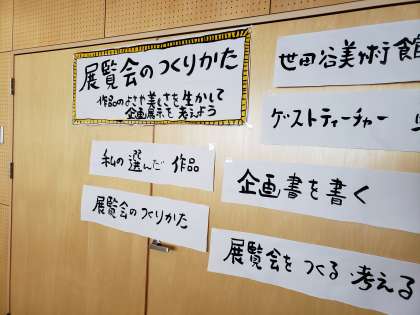 展覧会のつくりかた
作品のよさや美しさを生かして
企画展示を考えよう
私の選んだ作品
展覧会のつくりかた
世田谷美術館
ゲストティーチャー
企画書を書く
展覧会をつくる・考える